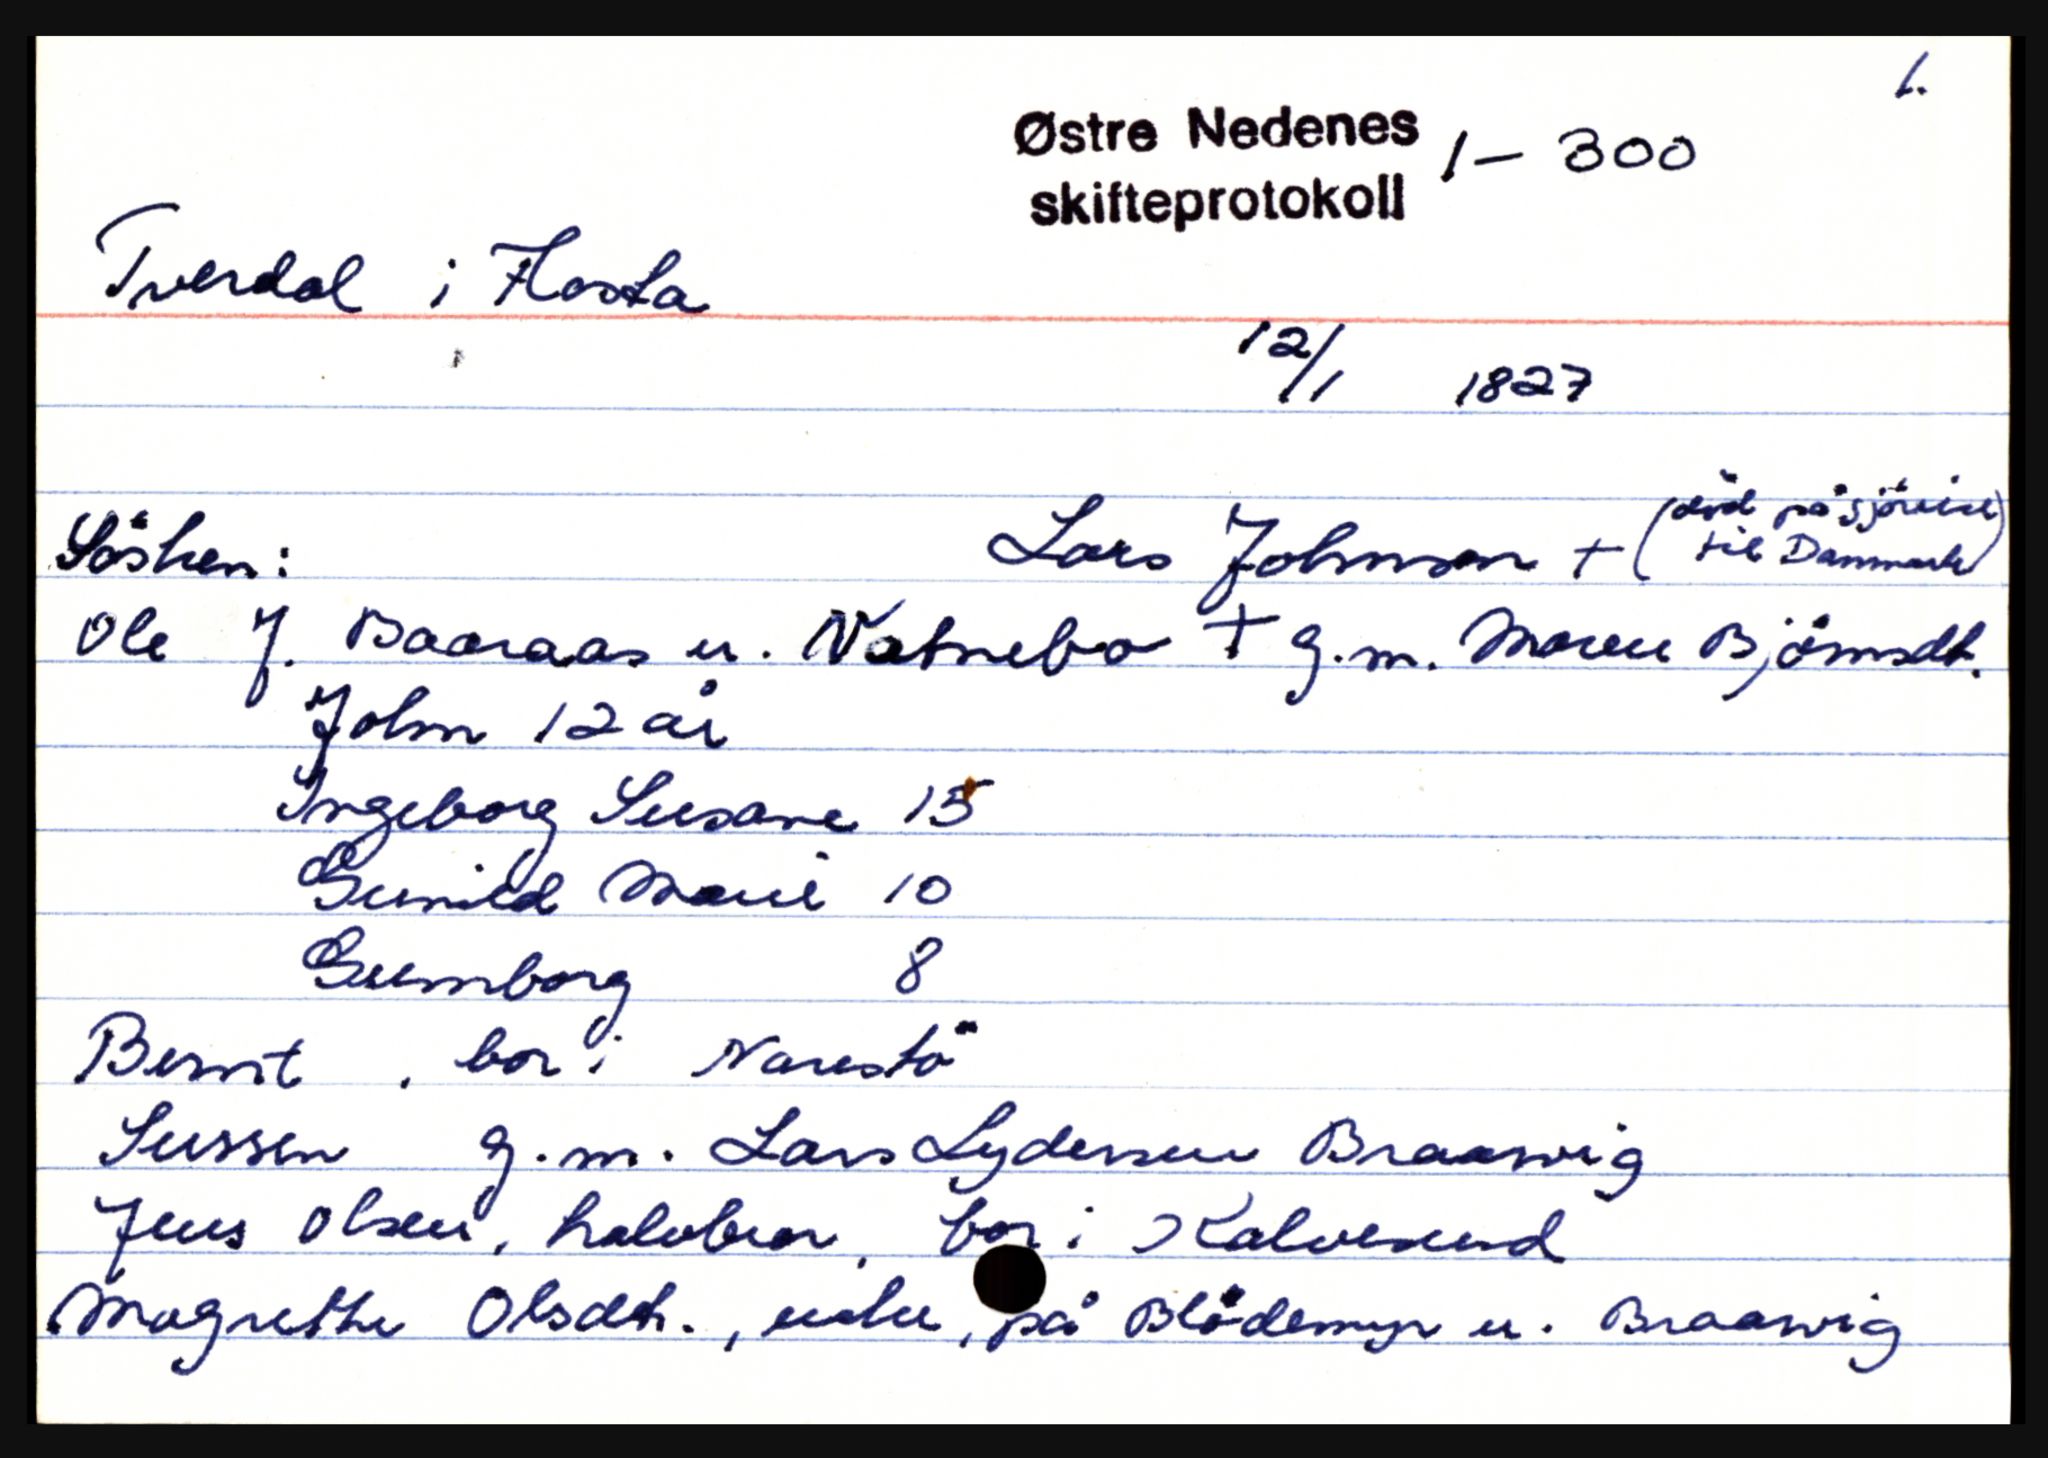 1.
Østre Nedenes
skifteprotokoll 1 – 300
Tverdal i Flosta
12/1 1827
Lars Johnson + (död på sjöreise
til Danmark)
Sösken:
Ole J. Baaraas u. Natnebo + g.m. Maren Björnsdt.
John 12 år
Ingeborg Susane 15
Gunild Marie 10
Gunborg 8
Bernt , bor i Narestö
Sussen g.m. Lars Lydersen Braawig
Jens Olsen, halvbror, bor i Kalvesund
Magrethe Olsdtr., enke, på Blödemyr u. Braawig